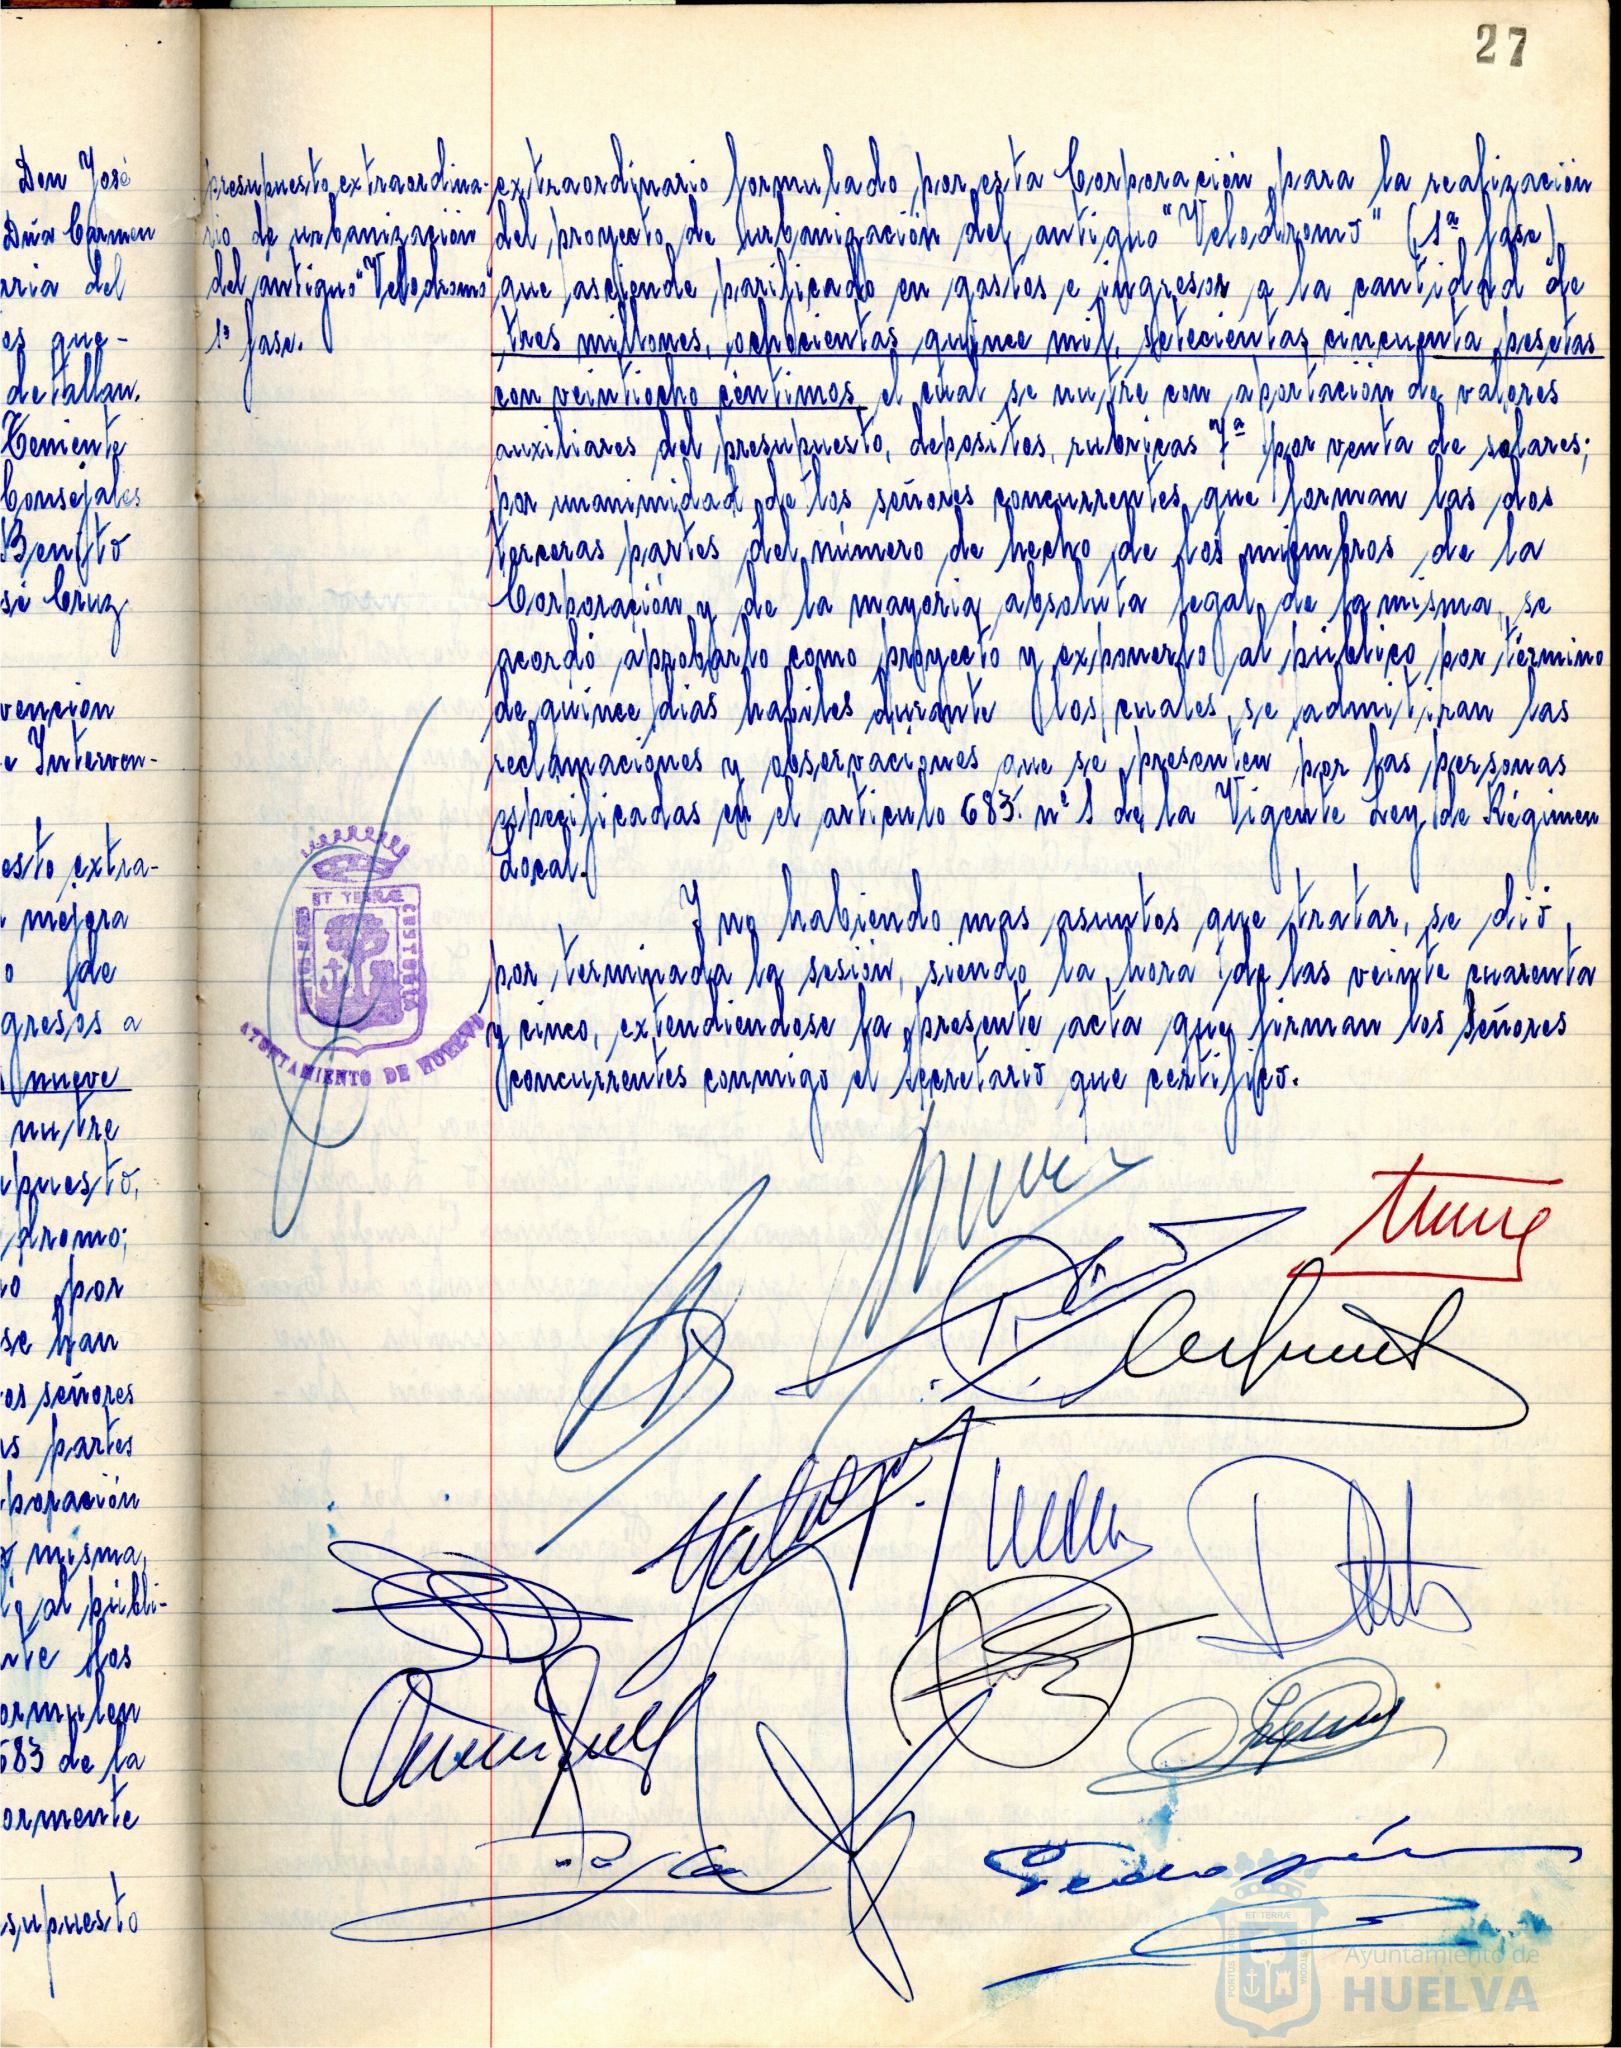 27
Don José
Dña Carmen
aria del
es que-
detallan.
Teniente
Consejales
Benito
sé Cruz
vencion
e Interven-
esto extra-
mejora
o de
gresos a
nueve
nutre
upuesto,
dromo;
o por
se han
os señores
as partes
poración
misma,
al públi-
nte los
ormulen
683 de la
ormente
supuesto
presupuesto extraordina-
rio de urbanización
del antiguo "Velodromo"
1ª fase.
extraordinario formulado por esta Corporación para la realización
del proyecto de Urbanización del antiguo "Velodromo" (1ª fase)
que asciende parificado en gastos e ingresos a la cantidad de
tres millones, ochocientas quince mil, setecientas cincuenta pesetas
con veintiocho céntimos el cual se nutre con aportación de valores
auxiliares del presupuesto, depositos, rubricas 7ª por venta de solares;
por unanimidad de los señores concurrentes que forman las dos
terceras partes del número de hecho de los miembros de la
Corporación y de la mayoria absoluta legal de la misma, se
acordó aprobarlo como proyecto y exponerlo al público por término
de quince dias habiles durante los cuales, se admitiran las
reclamaciones y observaciones que se presenten por las personas
especificadas en el articulo 683. nº 1 de la Vigente Ley de Régimen
Local.
Y no habiendo mas asuntos que tratar, se dió
por terminada la sesión, siendo la hora de las veinte cuarenta
y cinco, extendiendose la presente acta que firman los Señores
concurrentes conmigo el Secretario que certifico.
ET TERRÆ
CUSTODIA
AYUNTAMIENTO DE HUELVA
ET TERRÆ
PORTUS MARIS
CUSTODIA
Ayuntamiento de
HUELVA